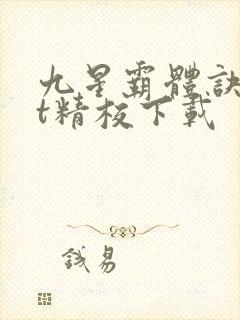 九星霸體訣
t精校下載
錢易